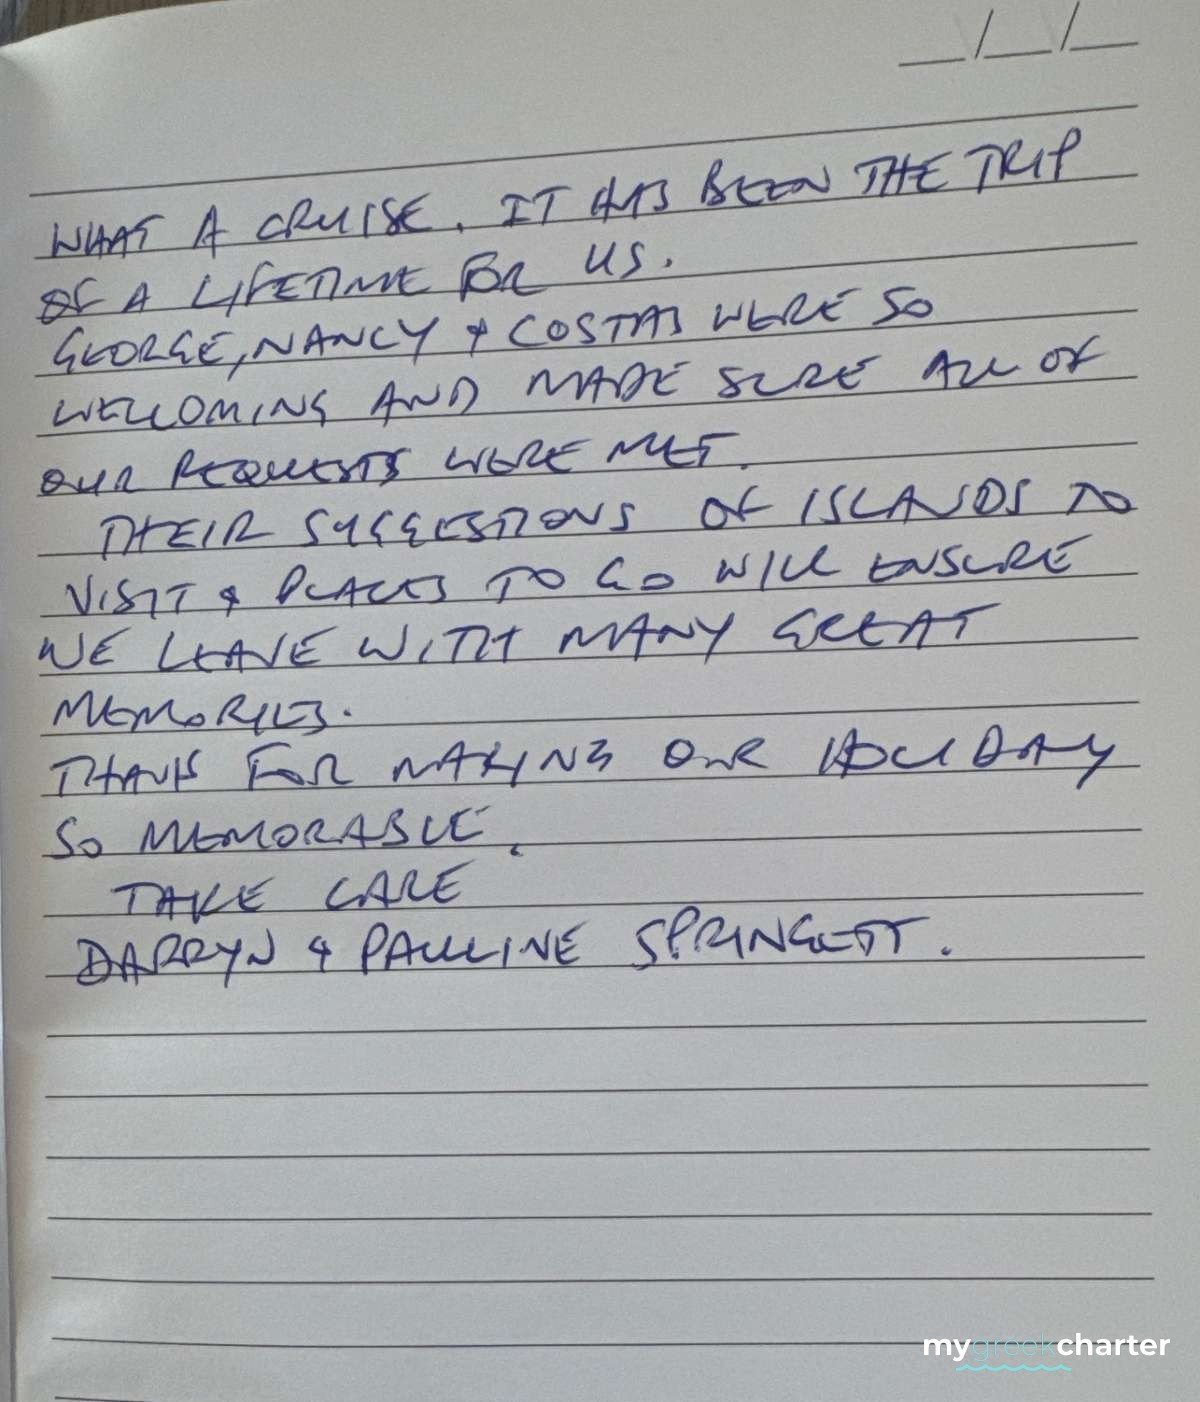 __/__/__
WHAT A CRUISE. IT HAS BEEN THE TRIP
OF A LIFETIME FOR US.
GEORGE, NANCY & COSTAS WERE SO
WELCOMING AND MADE SURE ALL OF
OUR REQUESTS WERE MET.
THEIR SUGGESTIONS OF ISLANDS TO
VISIT & PLACES TO GO WILL ENSURE
WE LEAVE WITH MANY GREAT
MEMORIES.
THANKS FOR MAKING OUR HOLIDAY
SO MEMORABLE.
TAKE CARE
DARRYN & PAULINE SPRINGETT.
mygreekcharter